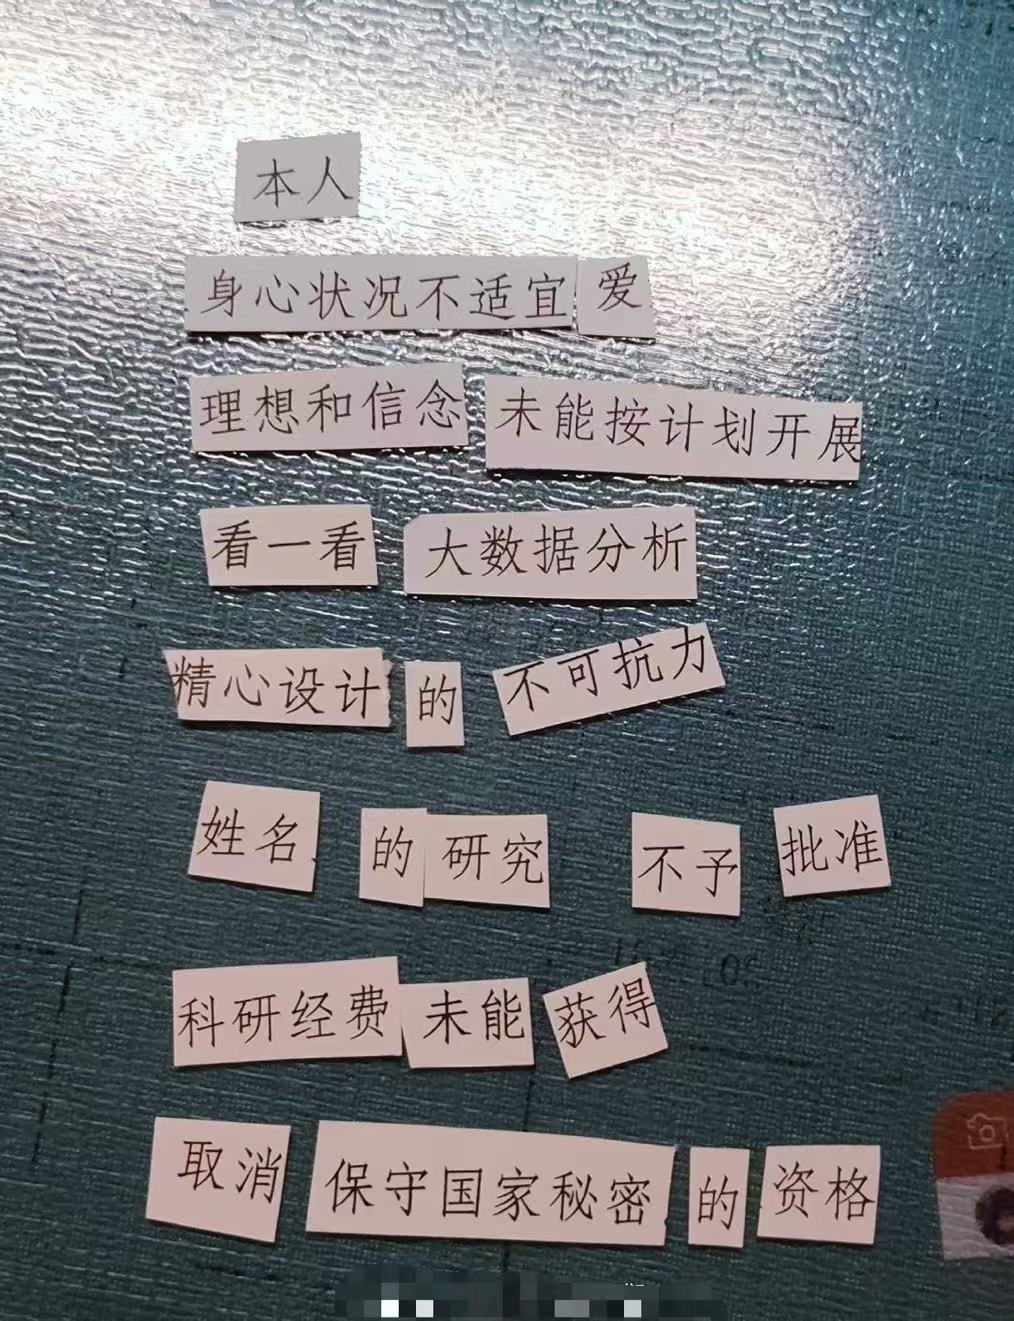 本人
身心状况不适宜 爱
理想和信念 未能按计划开展
看一看 大数据分析
精心设计 的 不可抗力
姓名 的 研究 不予 批准
科研经费 未能 获得
取消 保守国家秘密 的 资格